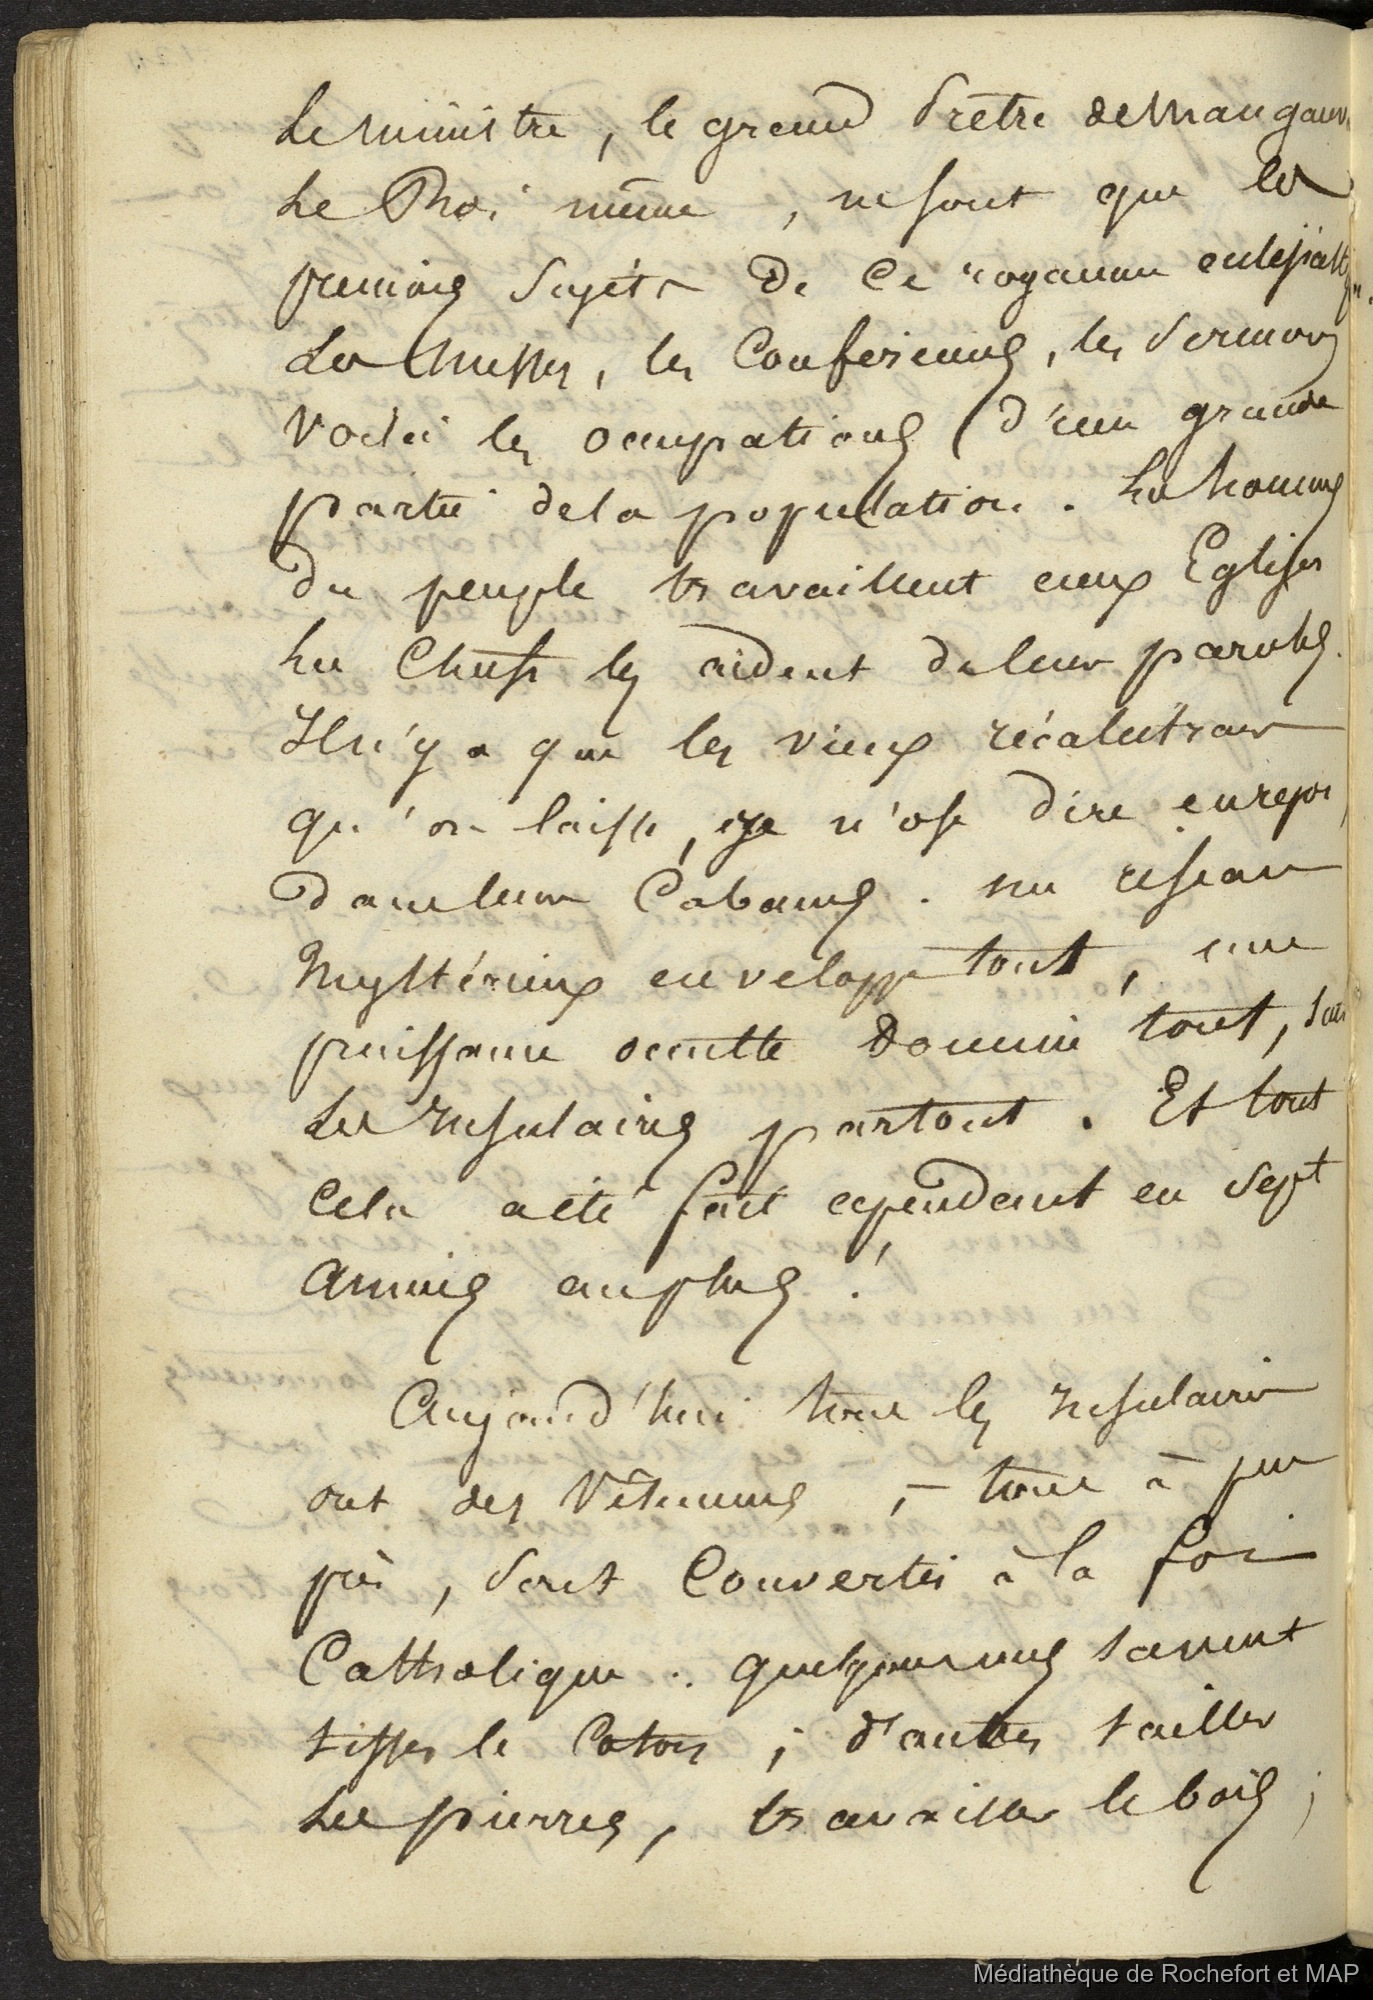 Le ministre, le grand Prêtre de Mangarev
Le Roi même, ne sont que les
premiers sujets de ce royaume eclésiastique.
Les Messes, les Conférences, les Sermons
Voilà les occupations d'une grande
partie de la population. Les hommes
du peuple travaillent aux Eglises
Les Chefs les aident de leurs paroles.
Il n'y a que les vieux récalcitrans
qu'on laisse, je n'ose dire en repos,
dans leurs Cabanes. un réseau
Mystérieux enveloppe tout, une
puissance occulte domine tout, suit
Les Insulaires partout. Et tout
cela a été fait cependant en sept
années au plus !
Aujourd'hui tous les Insulaires
ont des Vêtemens, - tous à peu
près, sont Convertis à la foi
Catholique. quelques uns savent
tisser le Coton ; d'autres tailler
Les pierres, travailler le bois ;
Médiathèque de Rochefort et MAP